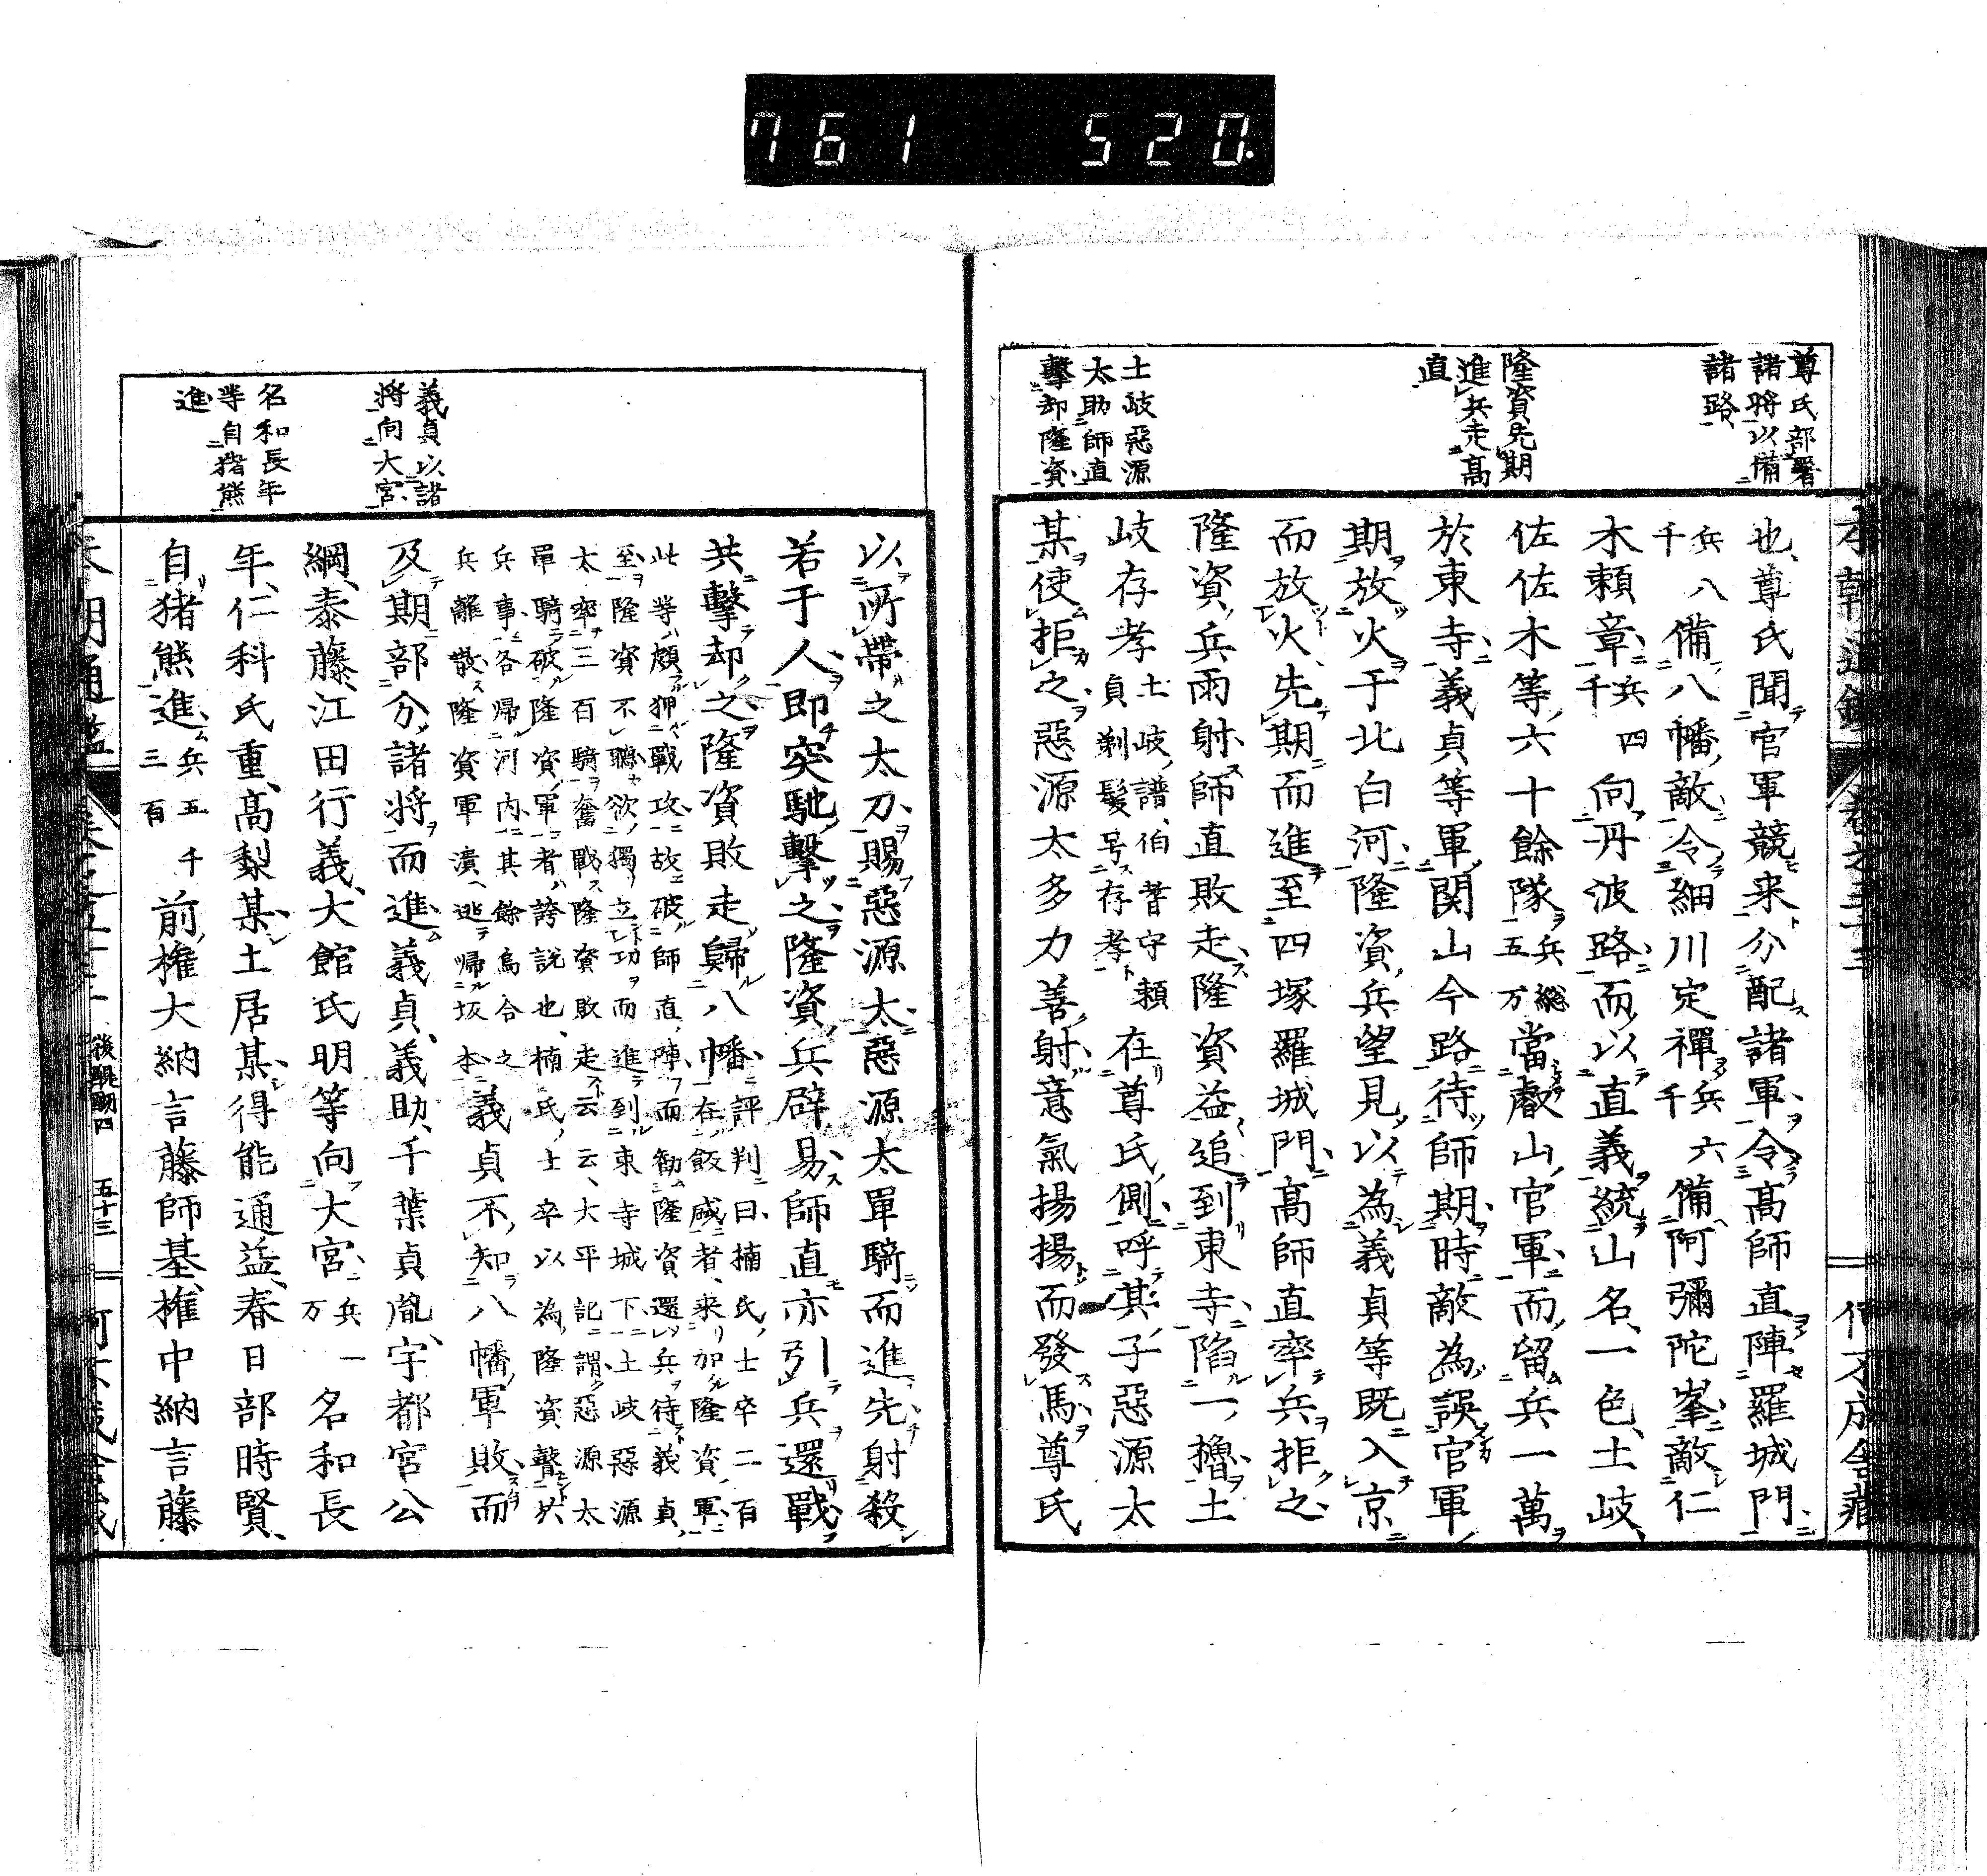 761 520.
尊氏部署
諸将以備
諸路
隆資先期
進兵走高
直
土岐惡源
太助師直
擊却隆資
也尊氏聞官軍競来分配諸軍令高師直陣羅城門
兵八千備八幡敵令細川定禪兵六千備阿彌陀峯敵仁
木頼章兵四千向丹波路而以直義統山名一色土岐
佐佐木等六十餘隊兵総五万當叡山官軍而留兵一萬
於東寺義貞等軍関山今路待師期時敵為誤官軍
期放火于北白河隆資兵望見以為義貞等既入京
而放火先期而進至四塚羅城門高師直率兵拒之
隆資兵雨射師直敗走隆資益追到東寺陷一櫓土
岐存孝土岐譜伯耆守頼貞剃髮号存孝在尊氏側呼其子惡源太
某使拒之惡源太多力善射意氣揚揚而發馬尊氏
義貞以諸
将向大宮
名和長年
等自猪熊
進
以所帶之太刀賜惡源太惡源太單騎而進先射殺
若于人即突馳擊之隆資兵辟易師直亦引兵還戰
共擊却之隆資敗走歸八幡評判曰楠氏士卒二百
在飯盛者来加隆資軍
此等頗狎戰攻故破師直陣而勧隆資還兵待義貞
至隆資不聽欲獨立功而進到東寺城下土岐惡源
太率三百騎奮戰隆資敗走云云大平記謂惡源太
單騎破隆資軍者誇説也楠氏士卒以為隆資聲
兵事各帰河内其餘烏合之
兵離散隆資軍潰逃帰坂本義貞不知八幡軍敗而
及期部分諸将而進義貞義助千葉貞胤宇都宮公
綱泰藤江田行義大館氏明等向大宮兵一万名和長
年仁科氏重高梨某土居某得能通益春日部時賢
自猪熊進兵五千三百前権大納言藤師基権中納言藤
後醍醐四 五十三